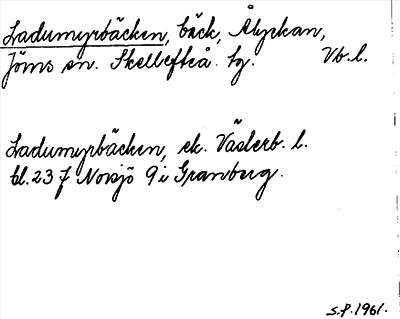 Ladumyrbäcken, bäck, Ålyckan,
Jörns sn. Skellefteå tg. Vb. l.
Ladumyrbäcken, ek. Västerb. l.
bl. 23 J Norsjö 9 i Granberg.
S.P. 1961.